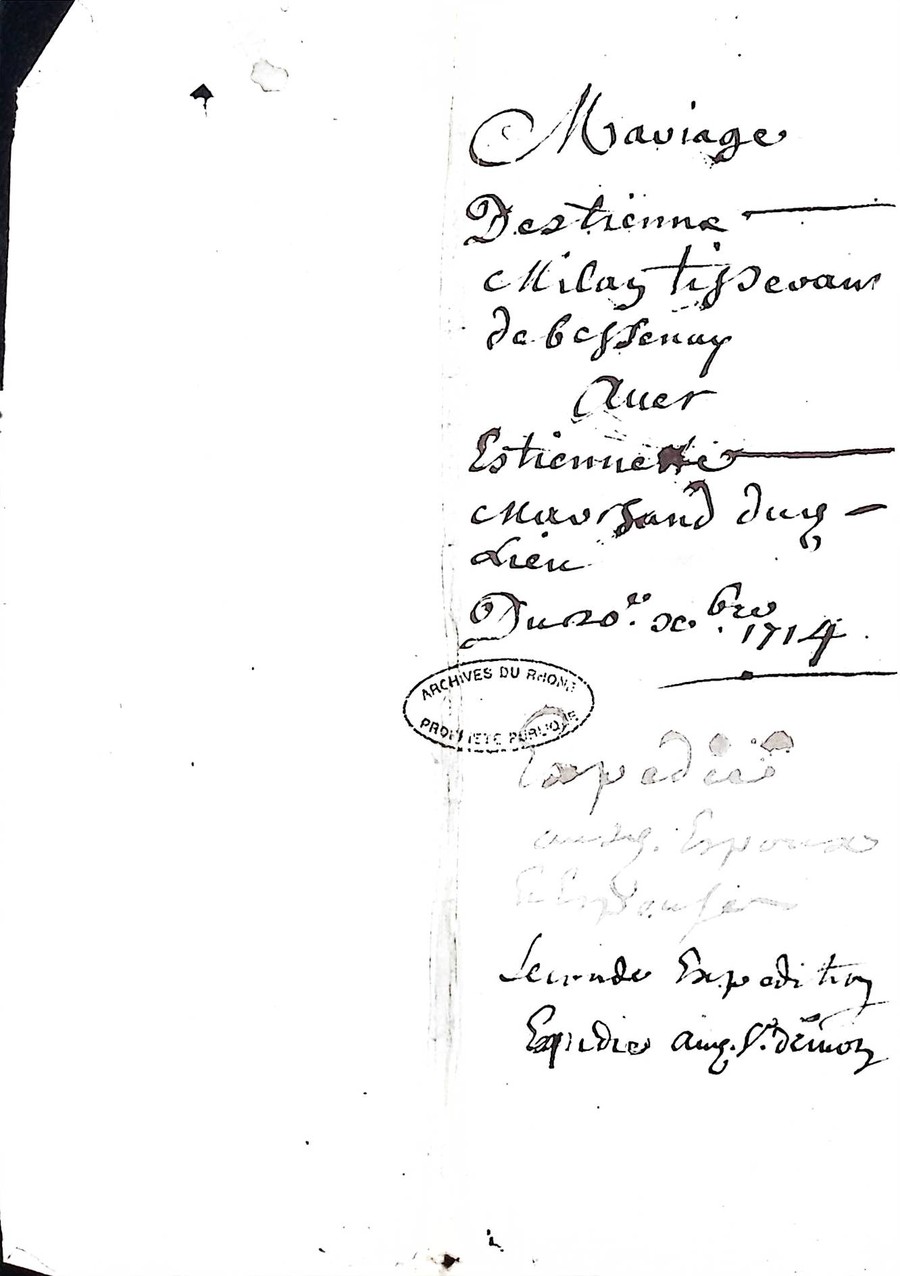 Mariage
Destienne
Milan tisseran
de bessenay
Avec
Estiennette
Marchand dud
Lieu
Du 20e. xbre 1714
ARCHIVES DU RHONE
PROPRIETE PUBLIQUE
Expediée
aud. Espoux
Seconde Expedition
Expediée aud. Sr.